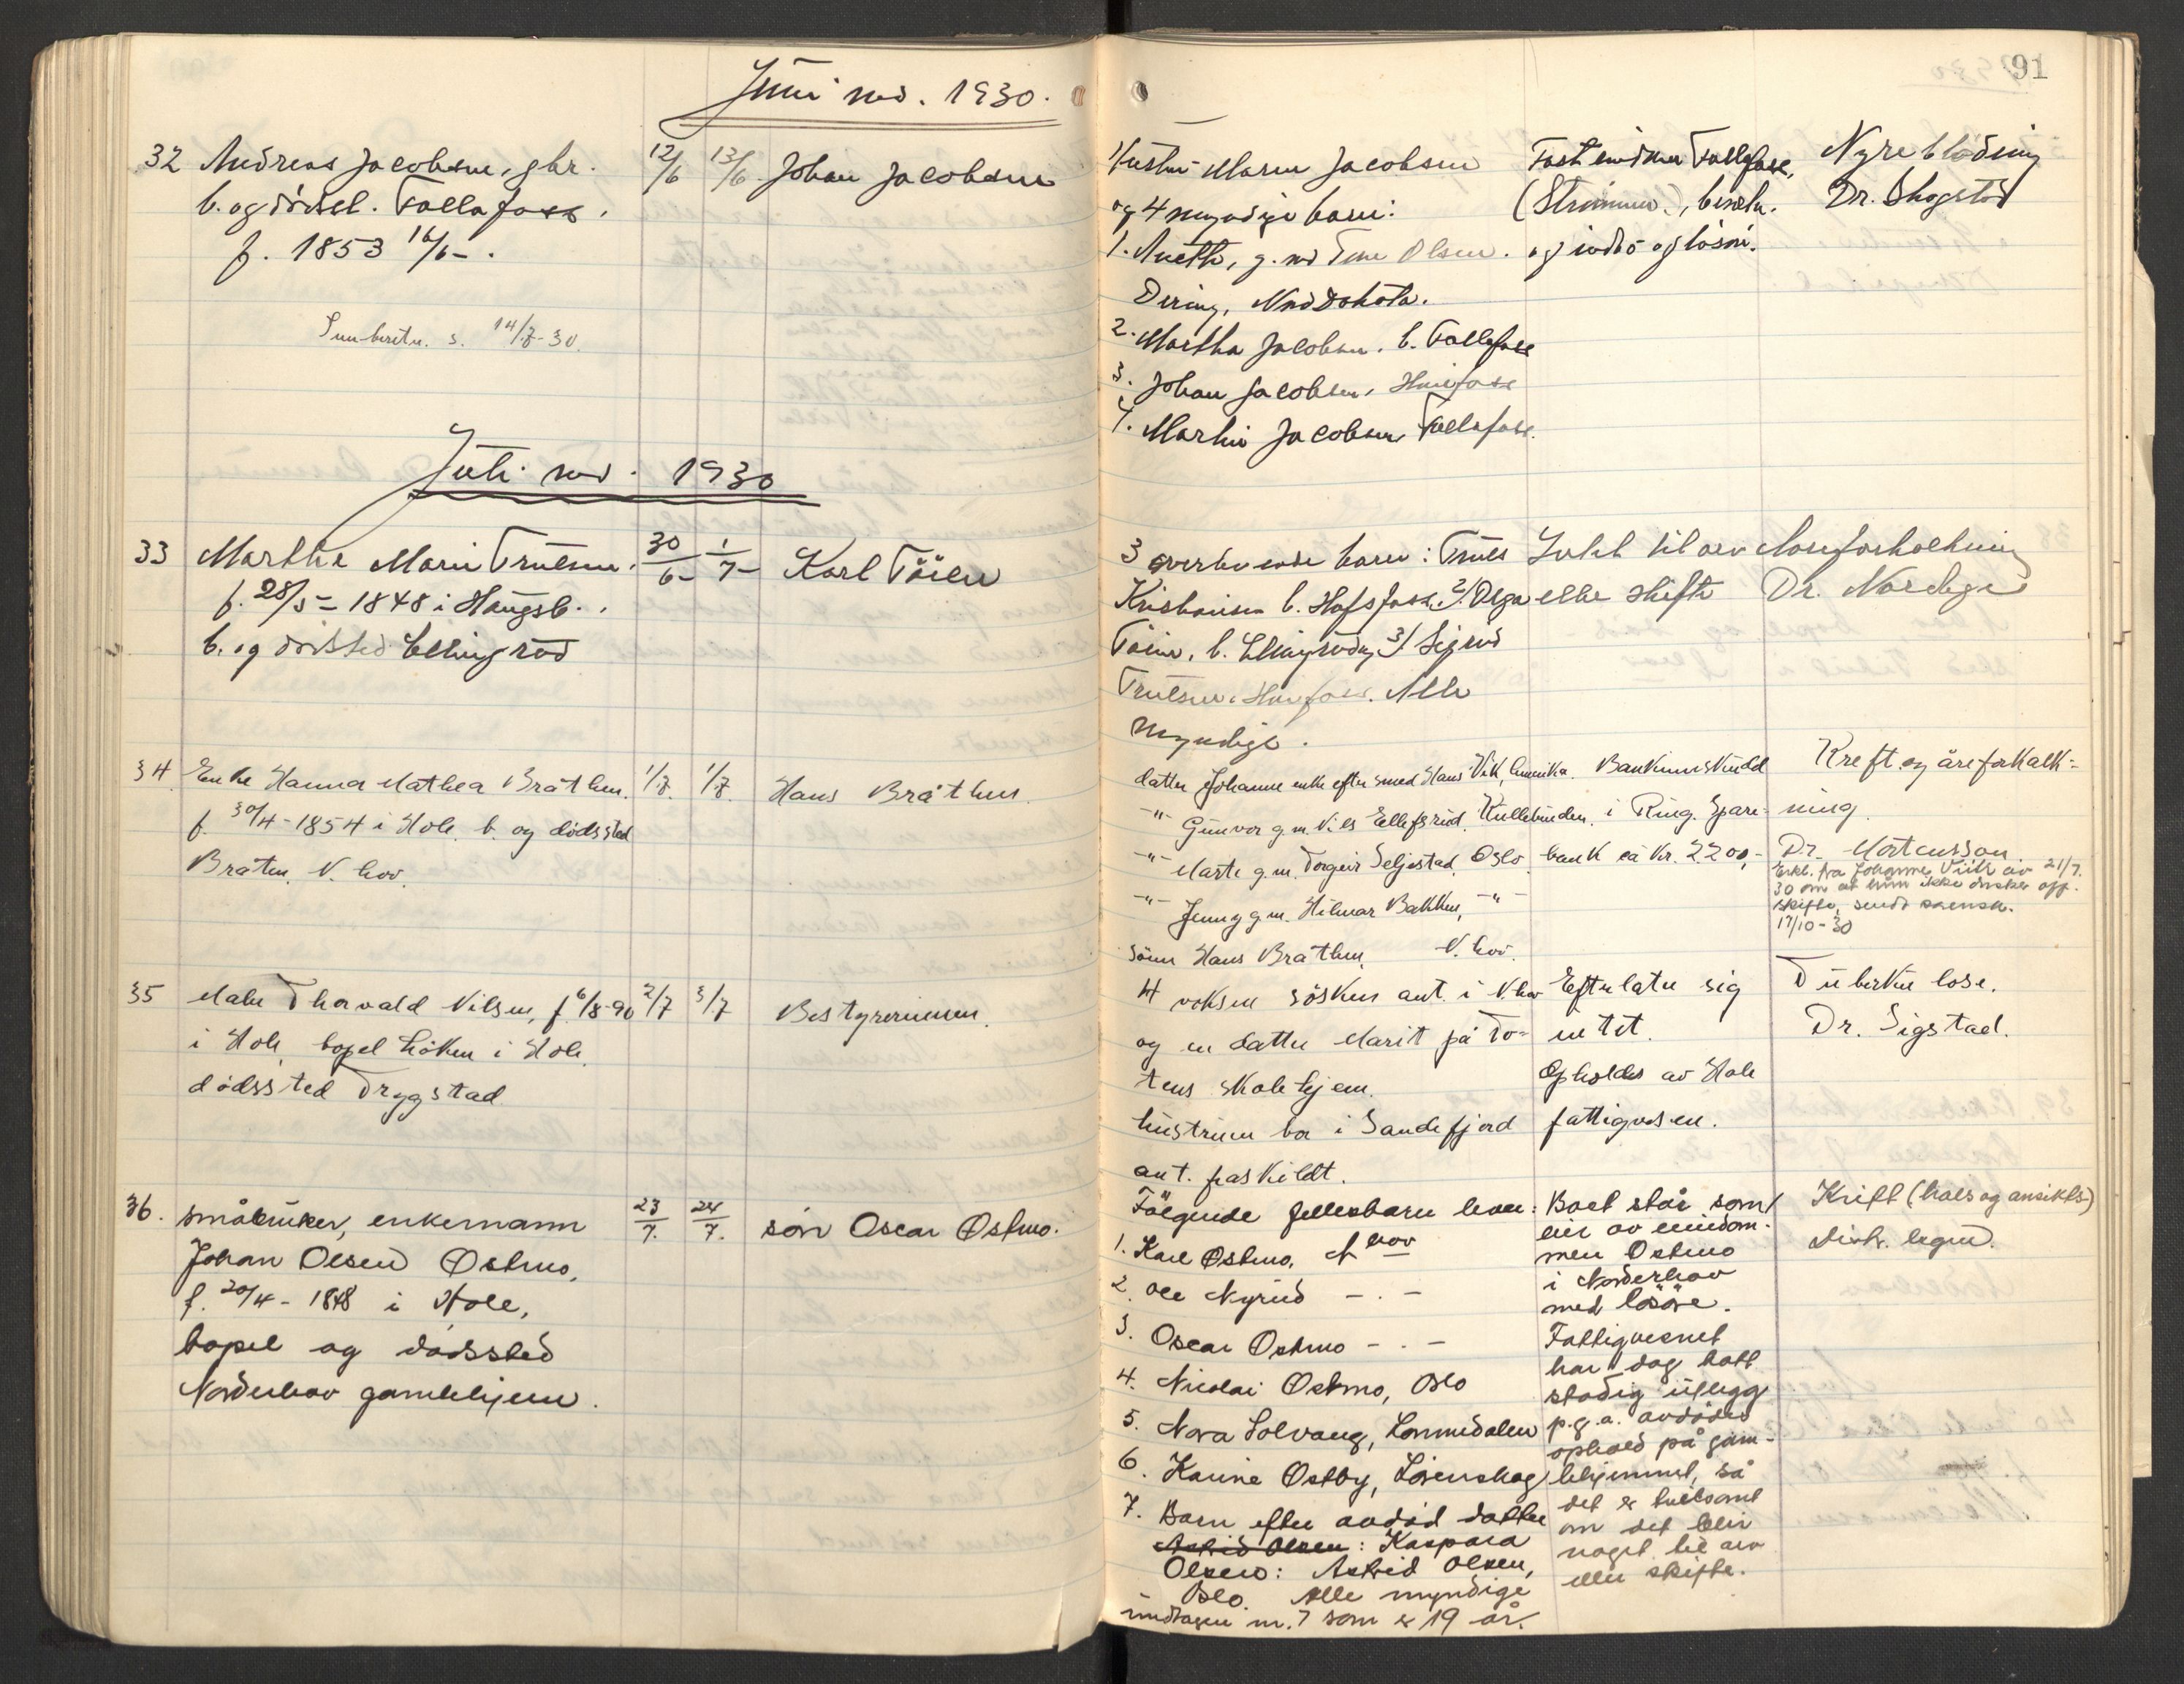 91
Juni md. 1930.
32 Andreas Jacobsen, gbr. 12/6 13/6 Johan Jacobsen
b. og dødsst. Follafoss.
f. 1853 16/6-.
14/7-30.
Hustru Maren Jacobsen
og 4 myndige barn:
1. Anette, g. md Olsen.
Dering, Norddakota.
2. Martha Jacobsen. b. Follafoss
3. Johan Jacobsen, Hønefoss
4. Martin Jacobsen, Follafoss.
Fast eiendom Follafoss,
og indbo og løsøre.
Nyreblødning
Dr. Skogstad
Juli md. 1930
33 Marthe Marie Trulsen. 30/6- 1/7- Karl Töien
f. 28/5- 1848 i Haugsb.
b. og dødssted Ellingsrud
3 overlevende barn: Truls
Kristiansen b. Hofsfoss, 2/ Olga
Töien, b. Ellingsrud og 3/ Sigrid
Trulsen, Hønefoss. Alle
myndige.
Intet til arv
eller skifte
Åreforkalkning
34 Enke Hanna Mathea Bråthen. 1/7. 1/7. Hans Bråthen.
f. 30/4-1854 i Hole. b. og dødssted
Bråten, N.hov.
datter Johanne enke efter smed Hans Vik, Amerika.
-"- Gunvor g.m. Nils Ellefsrud, Kullebunden.
-"- Marte g.m. Torgeir Seljestad, Oslo.
-"- Jenny g.m. Hilmar Bakken, -"-
Sønn Hans Bråthen, N.hov.
Bankinnskudd
i Ring. Spare-
bank ca kr. 2200,-
Kreft og åreforkalk-
ning.
Dr. Mortensson
Erkl. fra Johanne Viik av 21/7.
30 om at hun ikke ønsker off.
skifte, sendt
17/10-30
35 Maler Thorvald Nilsen, f. 6/8-90 2/7 3/7 Bestyrerinnen.
i Hole, bopel Löken i Hole
dødssted Trygstad
4 voksne søsken ant. i N.hov
og en datter Marit på To-
tens skolehjem.
hustruen bor i Sandefjord
ant. fraskildt.
Efterlater sig
intet.
Opholdes av Hole
fattigvesen.
Tuberkulose.
Dr. Sigstad.
36. småbruker, enkemann 23/7. 24/7. sön Oscar Østmo.
Johan Olsen Østmo,
f. 20/4- 1848 i Hole,
bopel og dødssted
Norderhov gamlehjem.
Følgende fellesbarn lever:
1. Karl Østmo, N hov
2. Ole Myrud -.-
3. Oscar Østmo -.-
4. Nicolai Østmo, Oslo
5. Nora Solvang, Lommedalen
6. Karine Østby, Lörenskog
7. Barn efter avdöd datter
Astrid Olsen: Kaspara
Olsen: Astrid Olsen,
Oslo. Alle myndige
undtagen nr. 7 som er 19 år.
Boet står som
eier av eiendom-
men Østmo
i Norderhov
med løsøre.
Fattigvesnet
har dog hatt
stadig utlegg
p.g.a. avdødes
ophold på gam-
lehjemmet, så
det er tvilsomt
om det blir
noget til arv
eller skifte.
Kreft (hals og ansikts-)
Distr. legen.